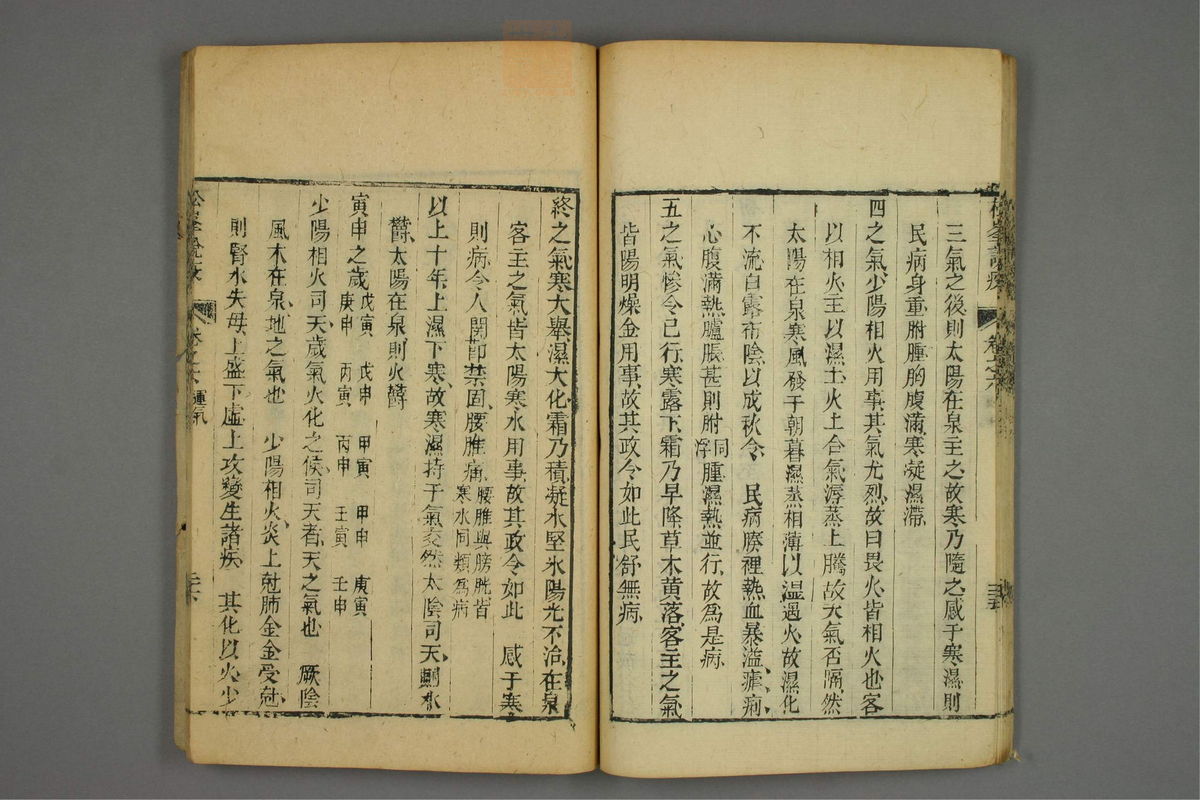 三氣之後則太陽在泉主之故寒乃隨之感于寒濕則
民病身重胕腫胸腹滿寒凝濕滯
四之氣少陽相火用事其氣尤烈故曰畏火皆相火也客
以相火主以濕土火土合氣溽蒸上騰故天氣否隔然
太陽在泉寒風發于朝暮濕蒸相薄以溫遇火故濕化
不流白露布陰以成秋令 民病腠裡熱血暴溢瘧痢
心腹滿熱臚脹甚則胕同浮腫濕熱並行故為是病
五之氣慘令已行寒露下霜乃早降草木黃落客主之氣
皆陽明燥金用事故其政令如此民舒無病
松峯說疫 卷之六
終之氣寒大舉濕大化霜乃積凝水堅氷陽光不治在泉
客主之氣皆太陽寒水用事故其政令如此 感于寒
則病令人關節禁固腰脽痛腰脽與膀胱皆寒水同類為病
以上十年上濕下寒故寒濕持于氣交然太陰司天則水
鬱太陽在泉則火鬱
寅申之歲戊寅 戊申 甲寅 甲申 庚寅
庚申 丙寅 丙申 壬寅 壬申
少陽相火司天歲氣火化之候司天者天之氣也 厥陰
風木在泉地之氣也 少陽相火炎上尅肺金金受尅
則腎水失母上盛下虛上攻變生諸疾 其化以火少
松峯說疫 卷之六 運氣